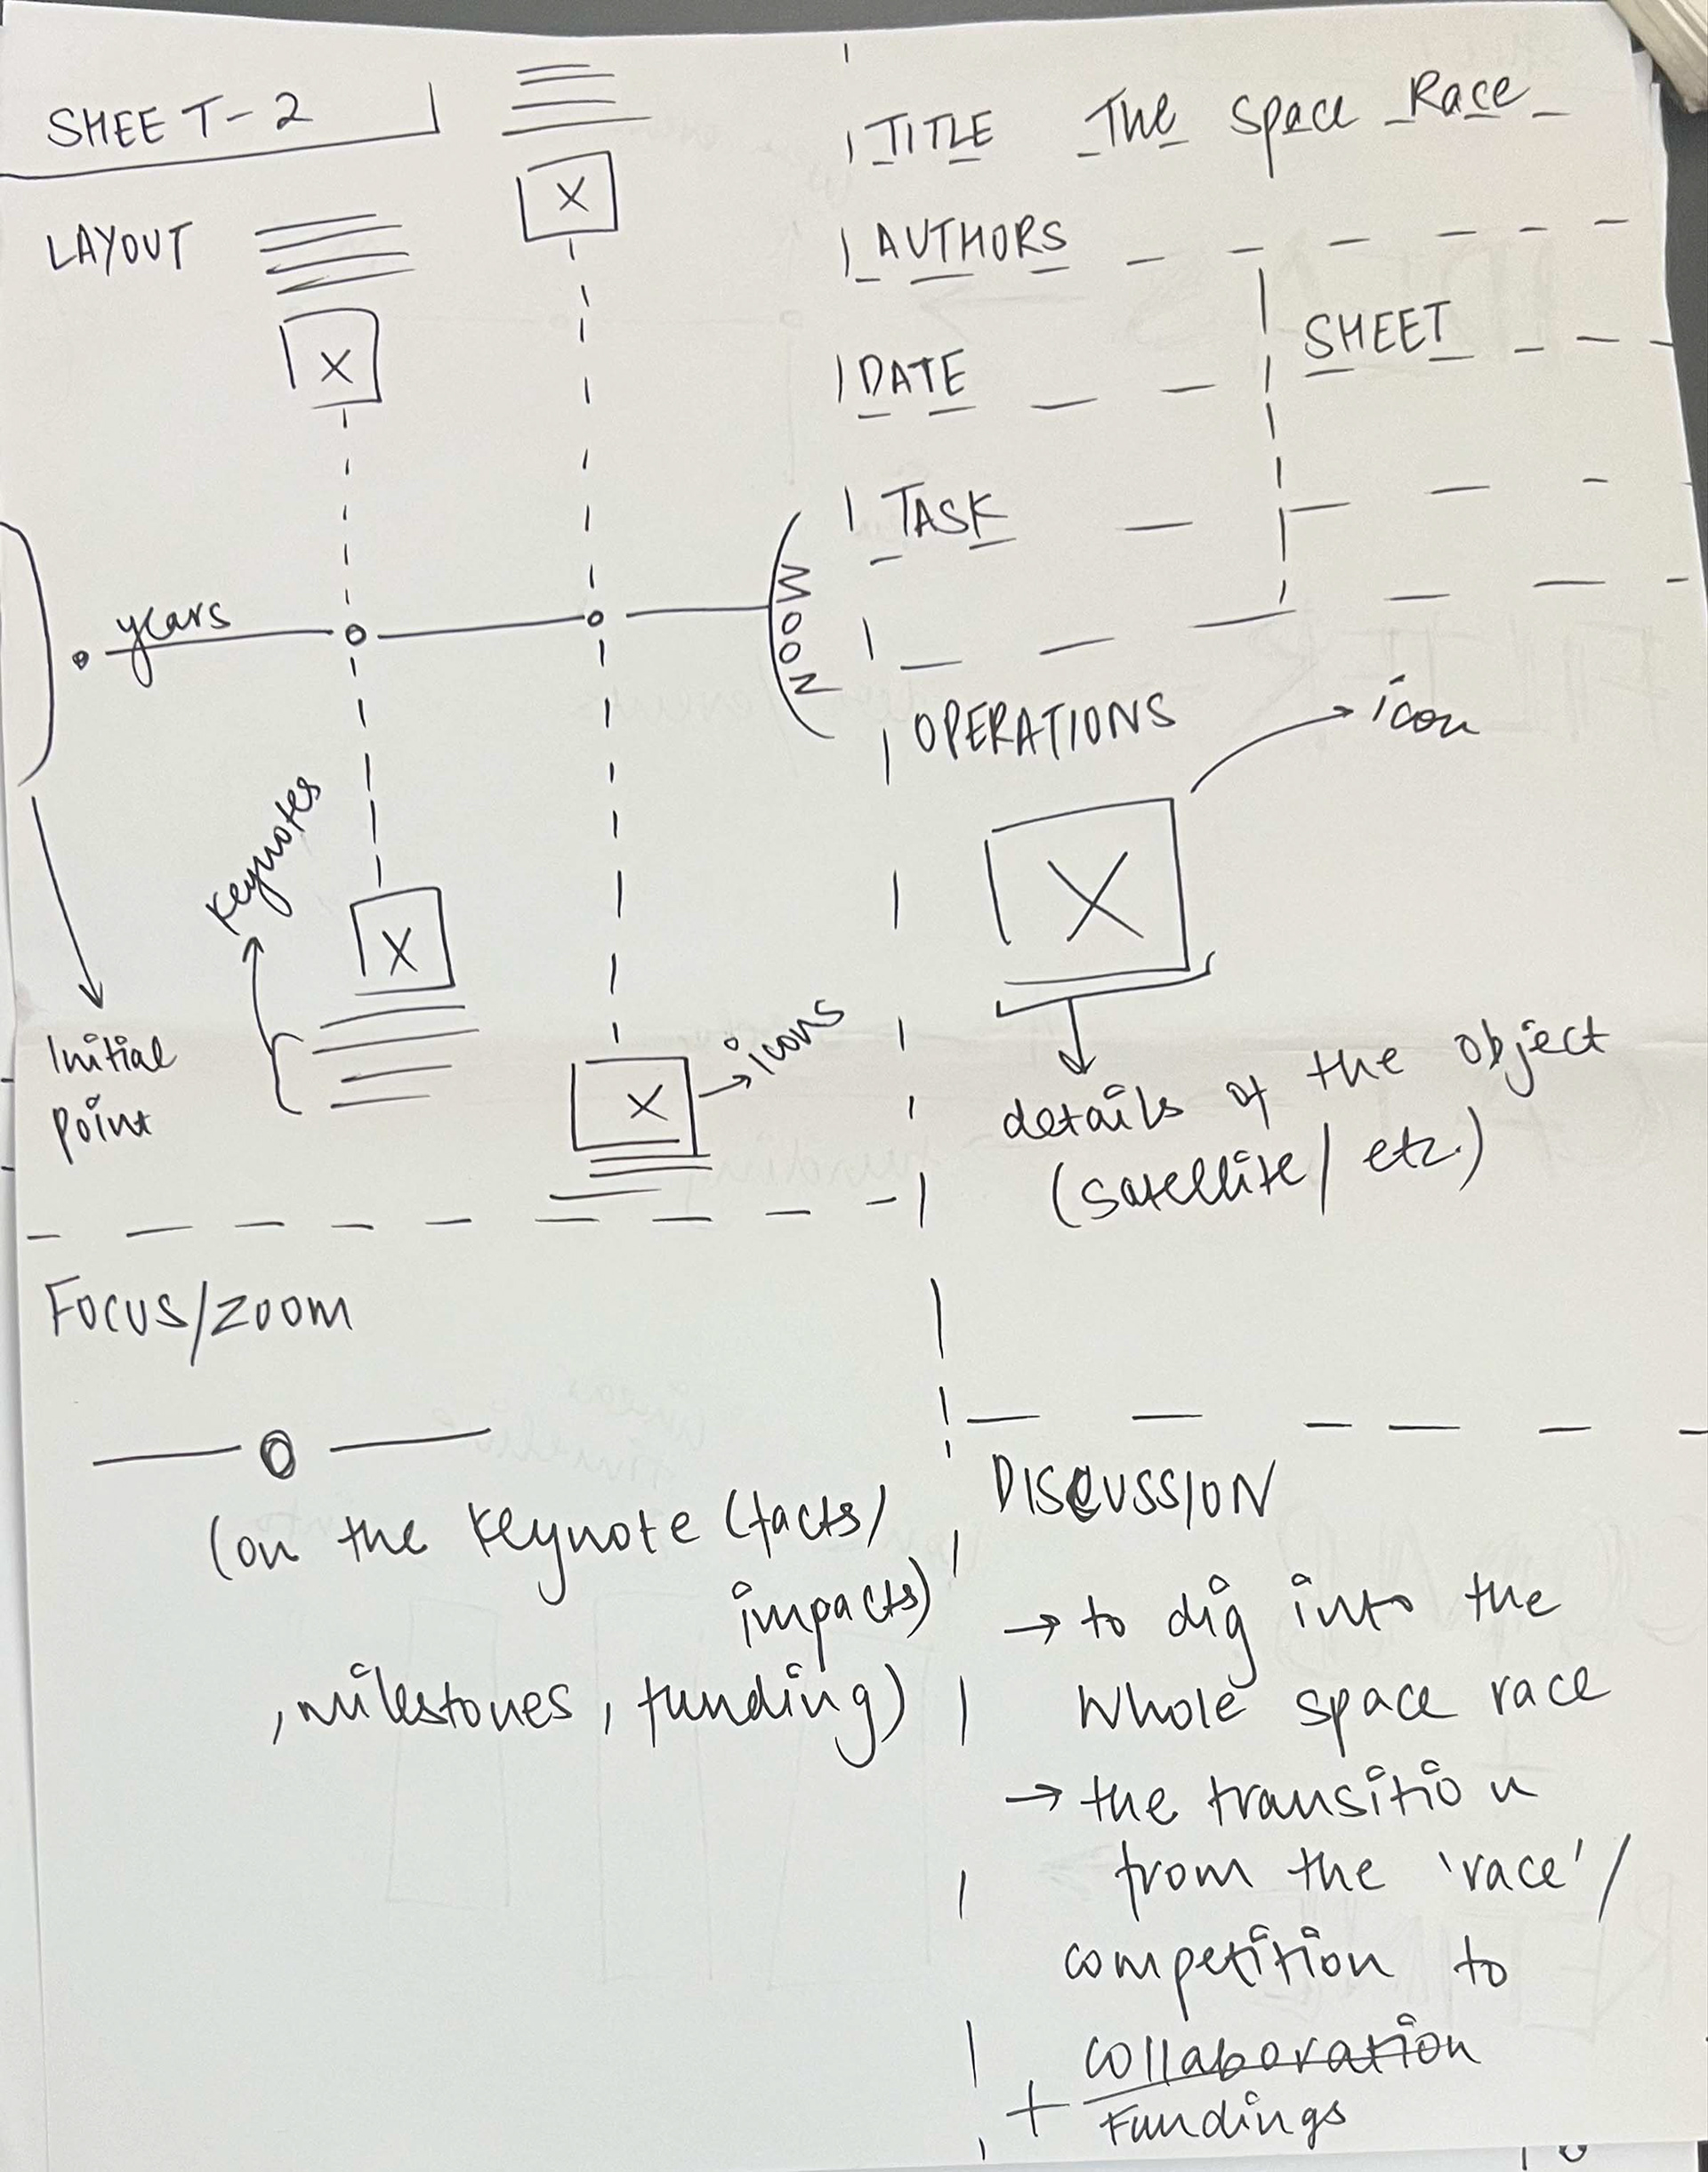 SHEET-2
LAYOUT
years
MOON
keynotes
Initial
point
icons
TITLE The Space Race
AUTHORS
DATE
SHEET
TASK
OPERATIONS
icon
details of the object
(satellite/ etc.)
FOCUS/ZOOM
(on the keynote (facts/
impacts)
, milestones, funding)
DISCUSSION
→ to dig into the
whole space race
→ the transition
from the 'race'/
competition to
collaboration
+ Fundings